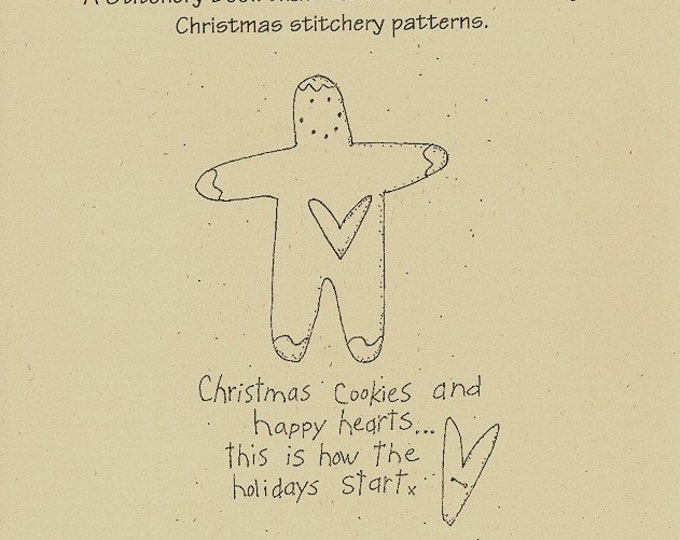 A Stitchery Book
Christmas stitchery patterns.
Christmas cookies and
happy hearts...
this is how the
holidays start